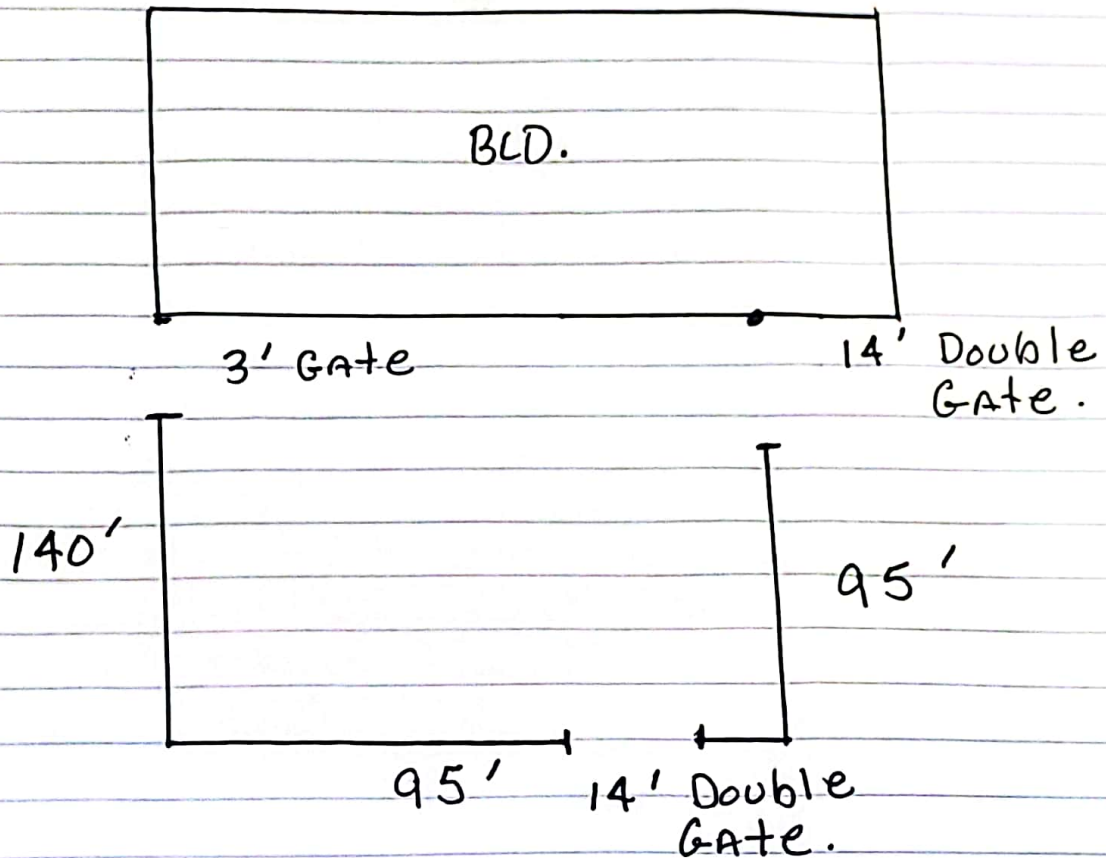 BLD.
3' GAte
14' Double
GAte.
140'
95'
95'
14' Double
GAte.